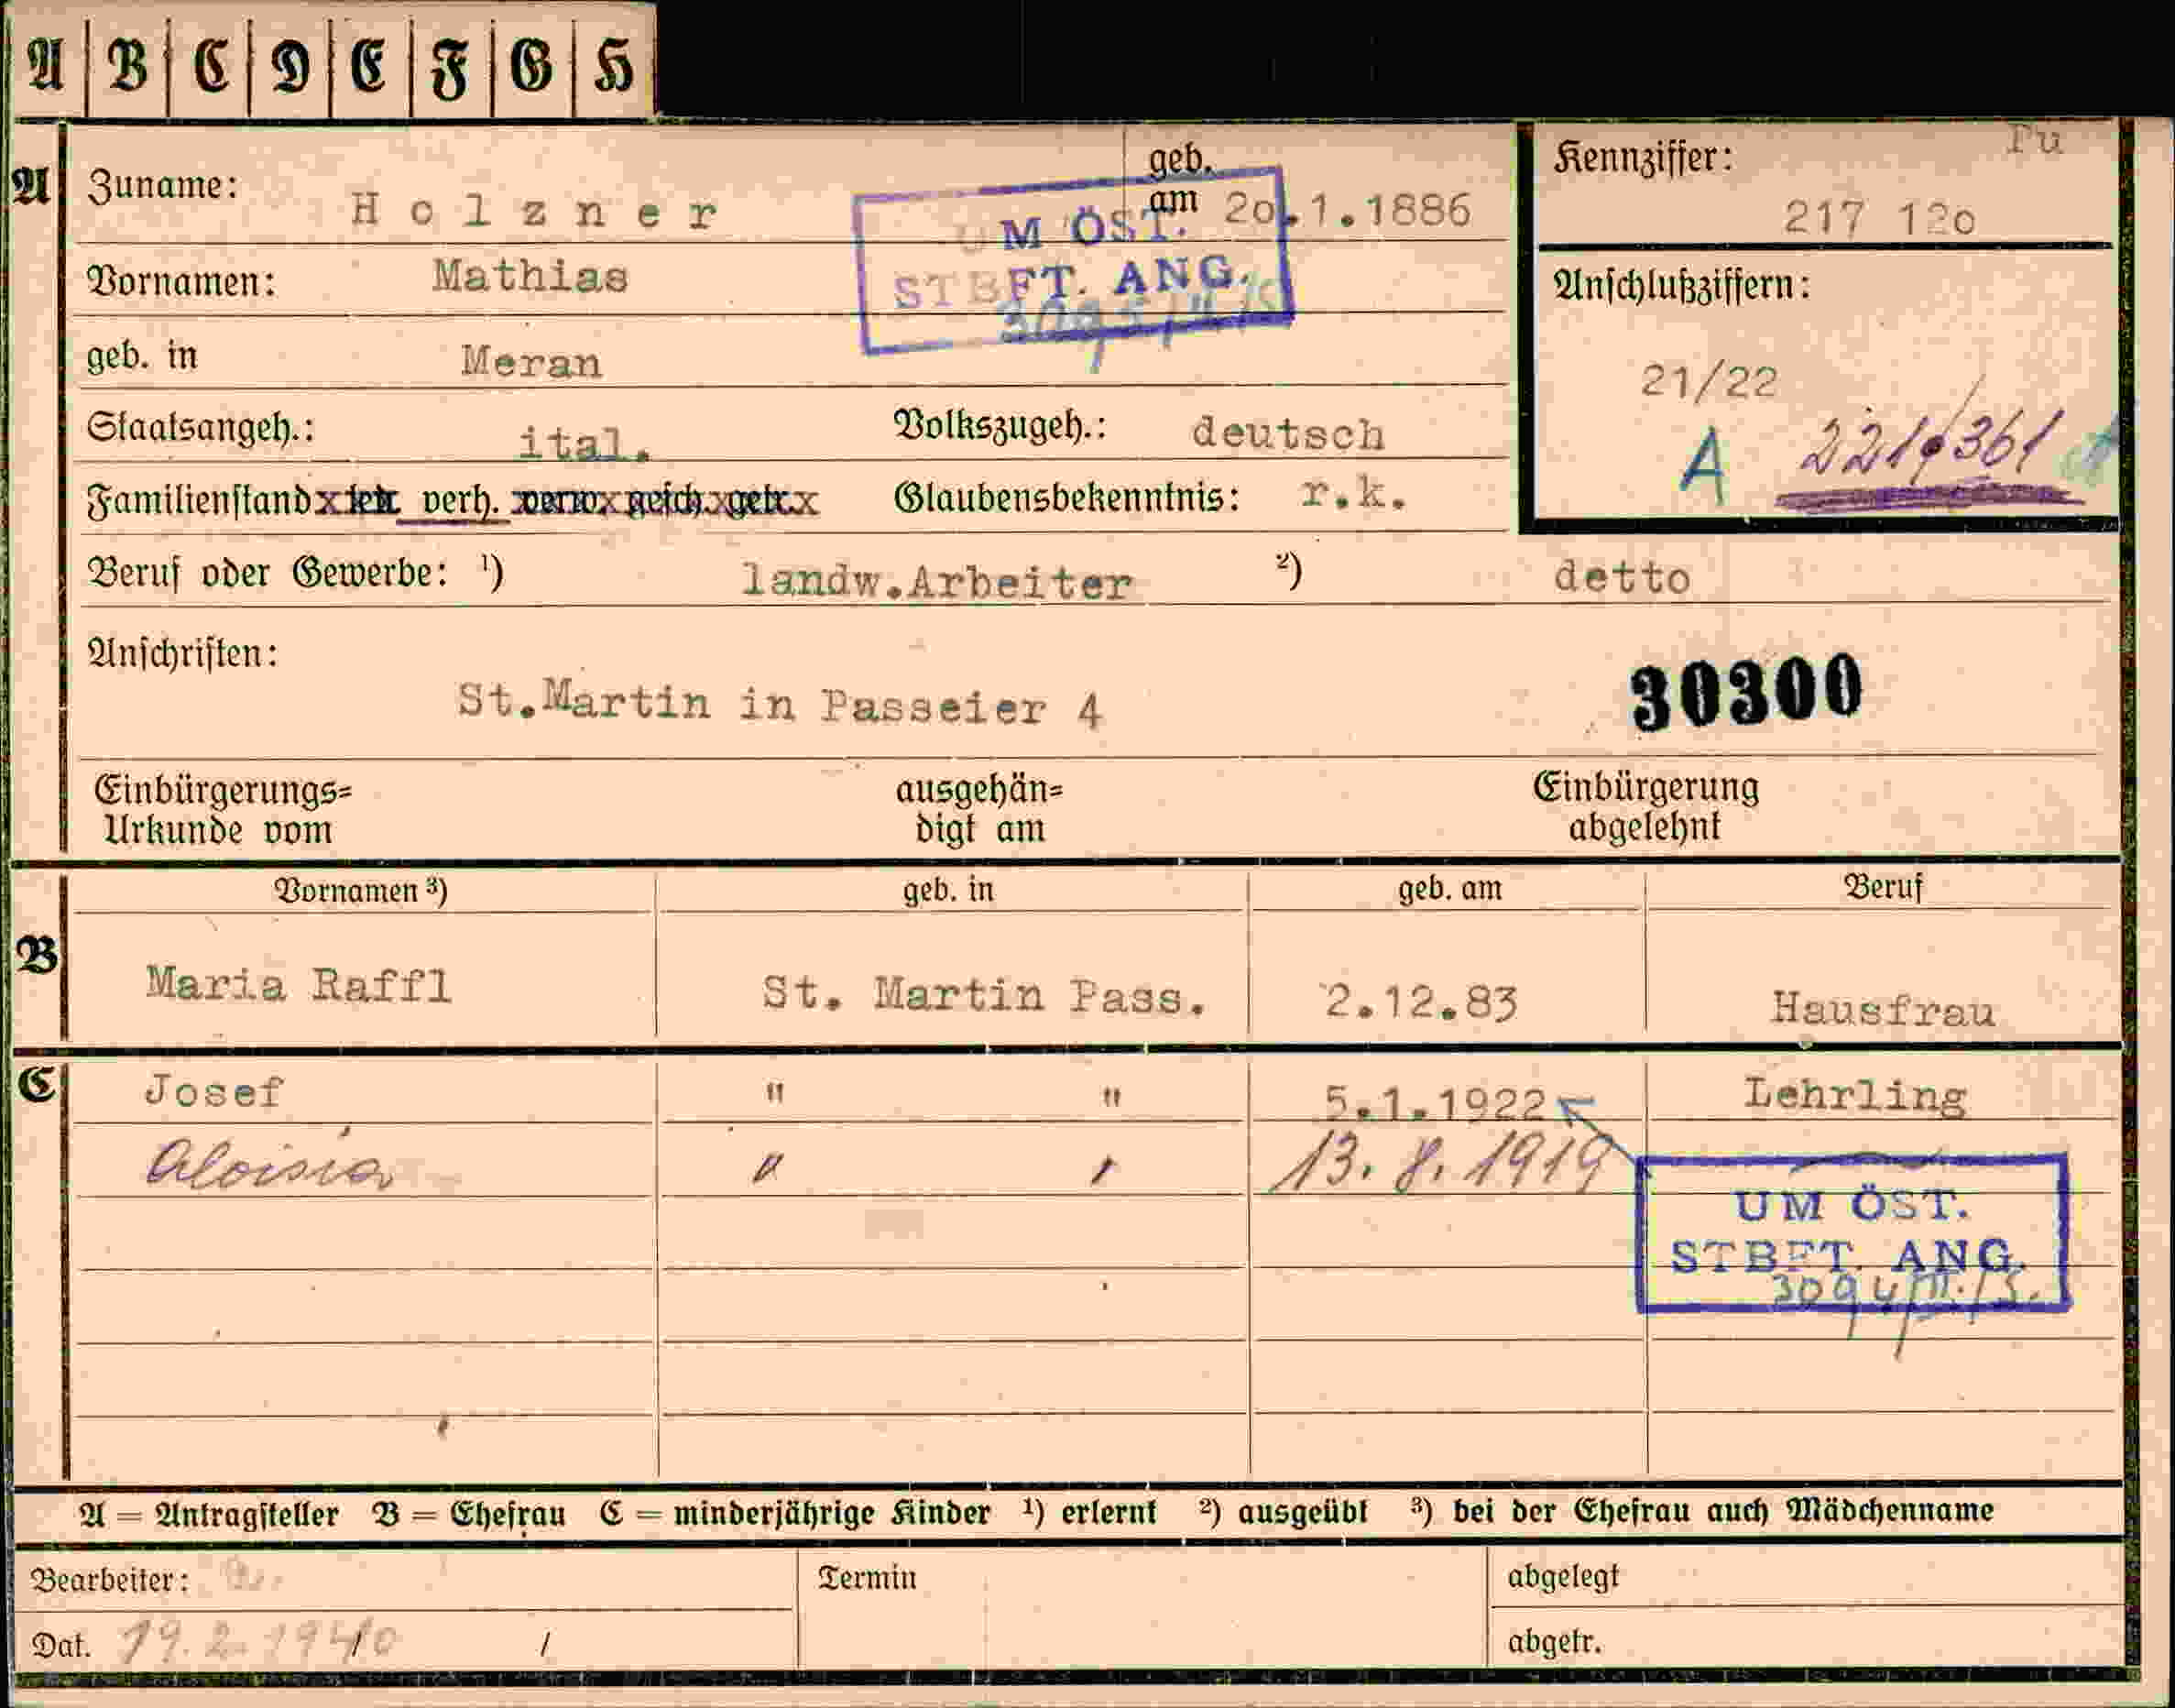 A B C D E F G H
A Zuname: Holzner geb. am 20.1.1886
Kennziffer: 217 120
UM ÖST.
STBFT. ANG.
Vornamen: Mathias
Anschlußziffern:
geb. in Meran
21/22
Staatsangeh.: ital. Volkszugeh.: deutsch
A 221 361
Familienstand led. verh. verw. gesch. getr. Glaubensbekenntnis: r.k.
Beruf oder Gewerbe: ¹) landw.Arbeiter ²) detto
Anschriften:
St.Martin in Passeier 4
30300
Einbürgerungs= Urkunde vom
ausgehän= digt am
Einbürgerung abgelehnt
Vornamen ³) geb. in geb. am Beruf
B Maria Raffl St. Martin Pass. 2.12.83 Hausfrau
C Josef " " 5.1.1922 Lehrling
Aloisia " " 13. 8. 1919
UM ÖST.
STBFT. ANG.
A = Antragsteller B = Ehefrau C = minderjährige Kinder ¹) erlernt ²) ausgeübt ³) bei der Ehefrau auch Mädchenname
Bearbeiter: Termin abgelegt
Dat. 19.2.1940 / abgetr.